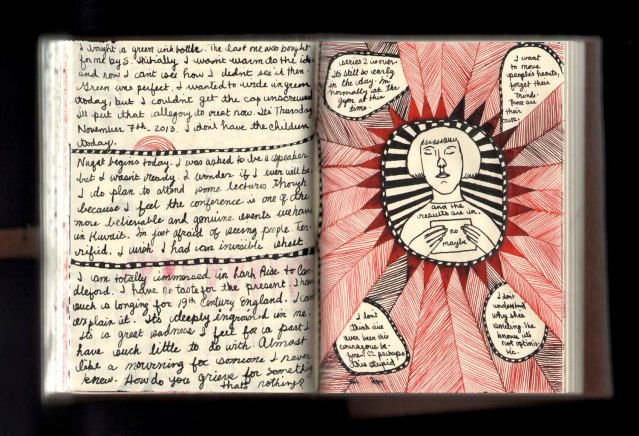 I bought a green ink bottle. The last one was bought
for me by S. Initially, I wasnt warm to the idea
and now I cant see how I didnt see it then.
Green was perfect. I wanted to write in green
today, but I couldnt get the cap unscrewed.
Ill put that allegory to rest now. Its Thursday
November 7th, 2013. I dont have the children
today.
Nuqat begins today. I was asked to be a speaker
but I wasnt ready. I wonder if I ever will be.
I do plan to attend some lectures though
because I feel the conference is one of the
more believable and genuine events we have
in Kuwait. Im just afraid of seeing people. Ter-
rified. I wish I had an invisible
I am totally immersed in Lark Rise to Can
dleford. I have no taste for the present. I have
such a longing for 19th century England. I cant
explain it. Its deeply engrained in me.
Its a great sadness I feel for a past I
have such little to do with. Almost
like a mourning for someone I never
knew. How do you grieve for something
thats nothing?
series 2 is over.
Its still so early
in the day. Im
normally at the
gym at this
time.
I want
to move
peoples hearts,
forget their
minds.
Those are
their
own.
and the
results are in.
no
maybe
I dont
think Ive
ever been this
courageous be-
fore! Or perhaps
this stupid
I dont
understand
why shes
smiling. She
knows its
not optimis-
tic.